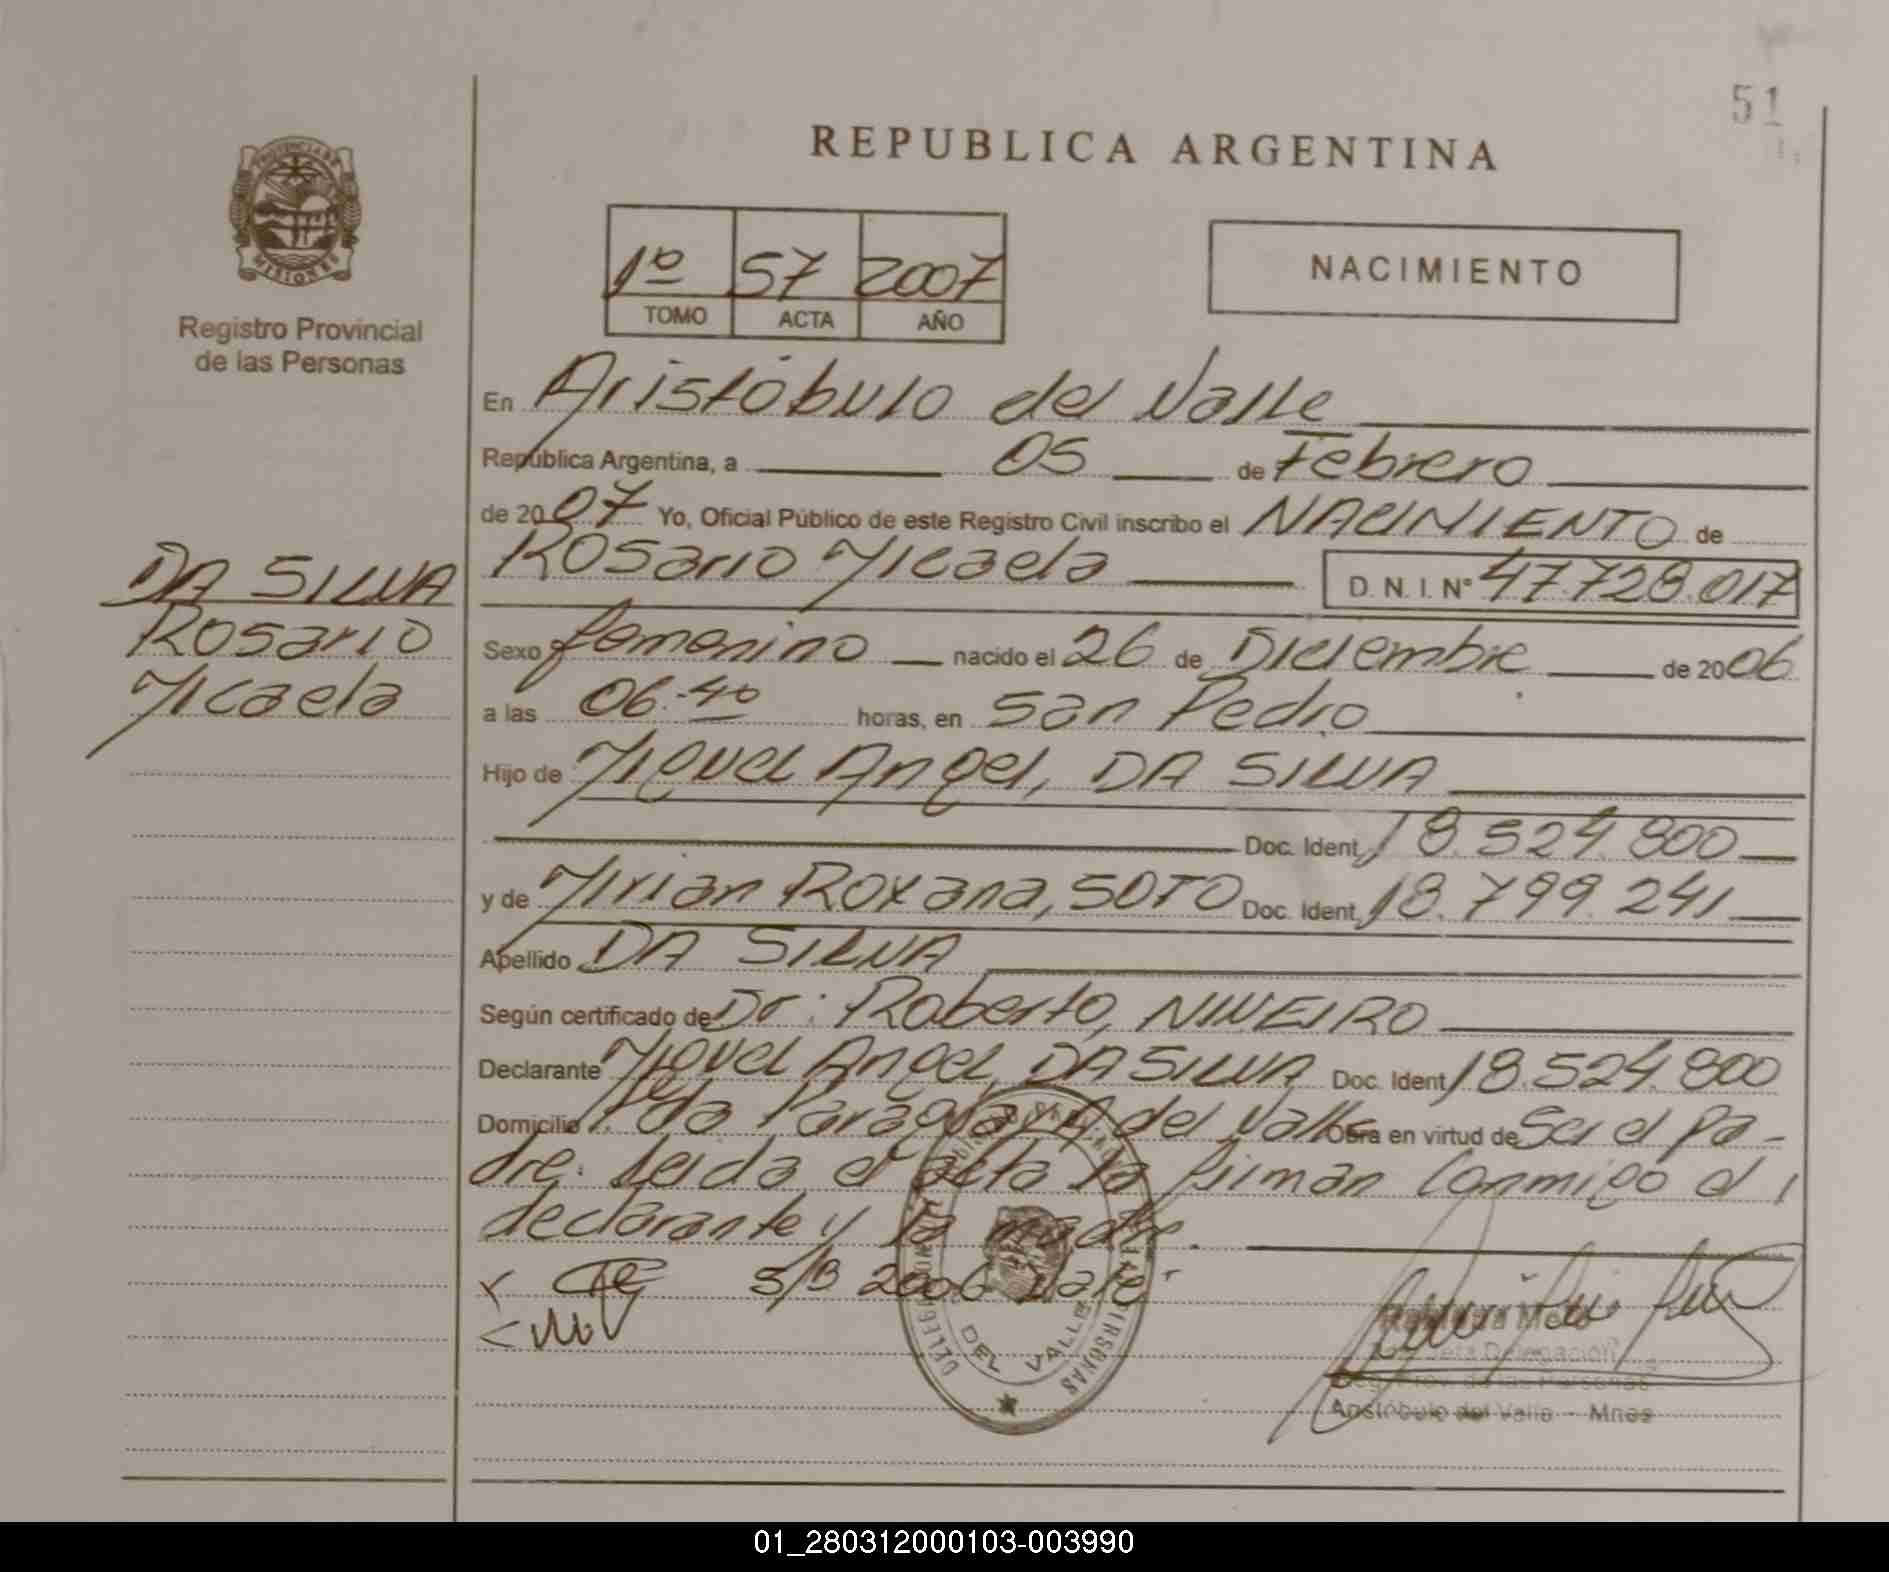 51
REPUBLICA ARGENTINA
PROVINCIA DE
MISIONES
Registro Provincial
de las Personas
1º 57 2007
TOMO ACTA AÑO
NACIMIENTO
En Aristóbulo del Valle
República Argentina, a 05 de Febrero
de 2007 Yo, Oficial Público de este Registro Civil inscribo el NACIMIENTO de
Rosario Micaela D. N. I. Nº 47.728.017
DA SILVA
Rosario
Micaela
Sexo femenino nacido el 26 de Diciembre de 2006
a las 06.40 horas, en San Pedro
Hijo de Miguel Angel, DA SILVA
Doc. Ident. 18.524.800
y de Mirian Roxana, SOTO Doc. Ident. 18.799.241
Apellido DA SILVA
Según certificado de Dr: Roberto, NIVEIRO
Declarante Miguel Angel, DA SILVA Doc. Ident. 18.524.800
Domicilio Pda Paraguay A del Valle Obra en virtud de Ser el pa-
dre. Leida el acta la firman conmigo el
declarante y la madre.
S/B 2006 Vale
DEL VALLE
Ramona Melo
Delegación
Reg. Prov. de las Personas
Aristóbulo del Valle - Mnes
01_280312000103-003990